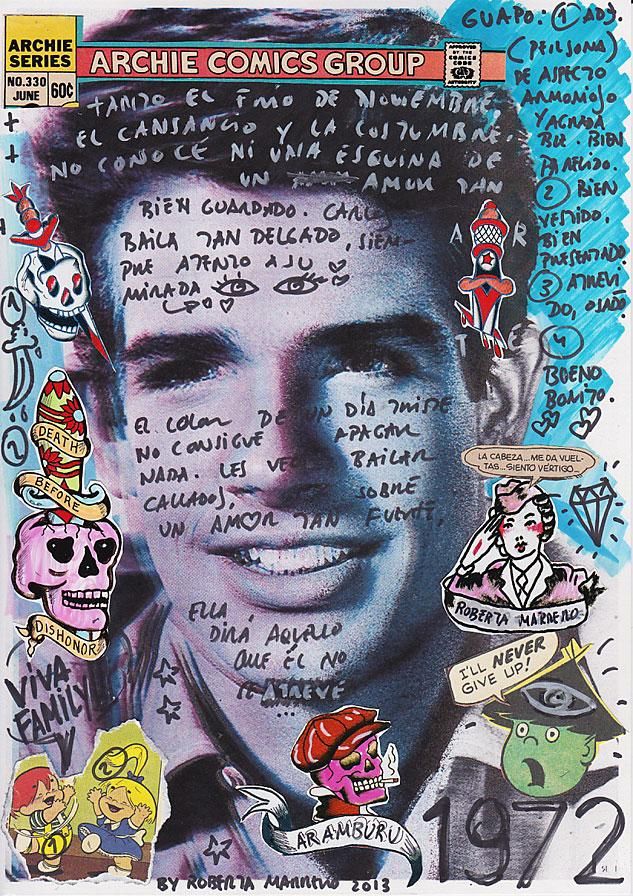 ARCHIE
SERIES
NO.330
JUNE
60¢
ARCHIE COMICS GROUP
APPROVED
BY THE
COMICS
CODE
AUTHORITY
TANTO EL FRIO DE NOVIEMBRE,
EL CANSANCIO Y LA COSTUMBRE.
NO CONOCE NI UNA ESQUINA DE
UN AMOR TAN
BIEN GUARDADO. CARLOS
BAILA TAN DELGADO, SIEM-
PRE ATENTO A SU
MIRADA
EL COLOR DE UN DÍA TRISTE
NO CONSIGUE APAGAR
NADA. LES VES BAILAR
CALLADOS, SOBRE
UN AMOR TAN FUERTE,
ELLA
DIRÁ AQUELLO
QUE ÉL NO
SE ATREVE
...
GUAPO: 1 ADJ.
(PERSONA)
DE ASPECTO
ARMONIOSO
Y AGRADA
BLE. BIEN
PARECIDO.
2 BIEN
VESTIDO,
BIEN
PRESENTADO.
3 ATREVI
DO, OSADO
4
BUENO
BONITO.
A R
T E
1
2
DEATH
BEFORE
DISHONOR
LA CABEZA...ME DA VUEL-
TAS...SIENTO VÉRTIGO...
ROBERTA MARRERO
I'LL NEVER
GIVE UP!
VIVA
FAMILY!
2
1
ARAMBURU
1972
BY ROBERTA MARRERO 2013